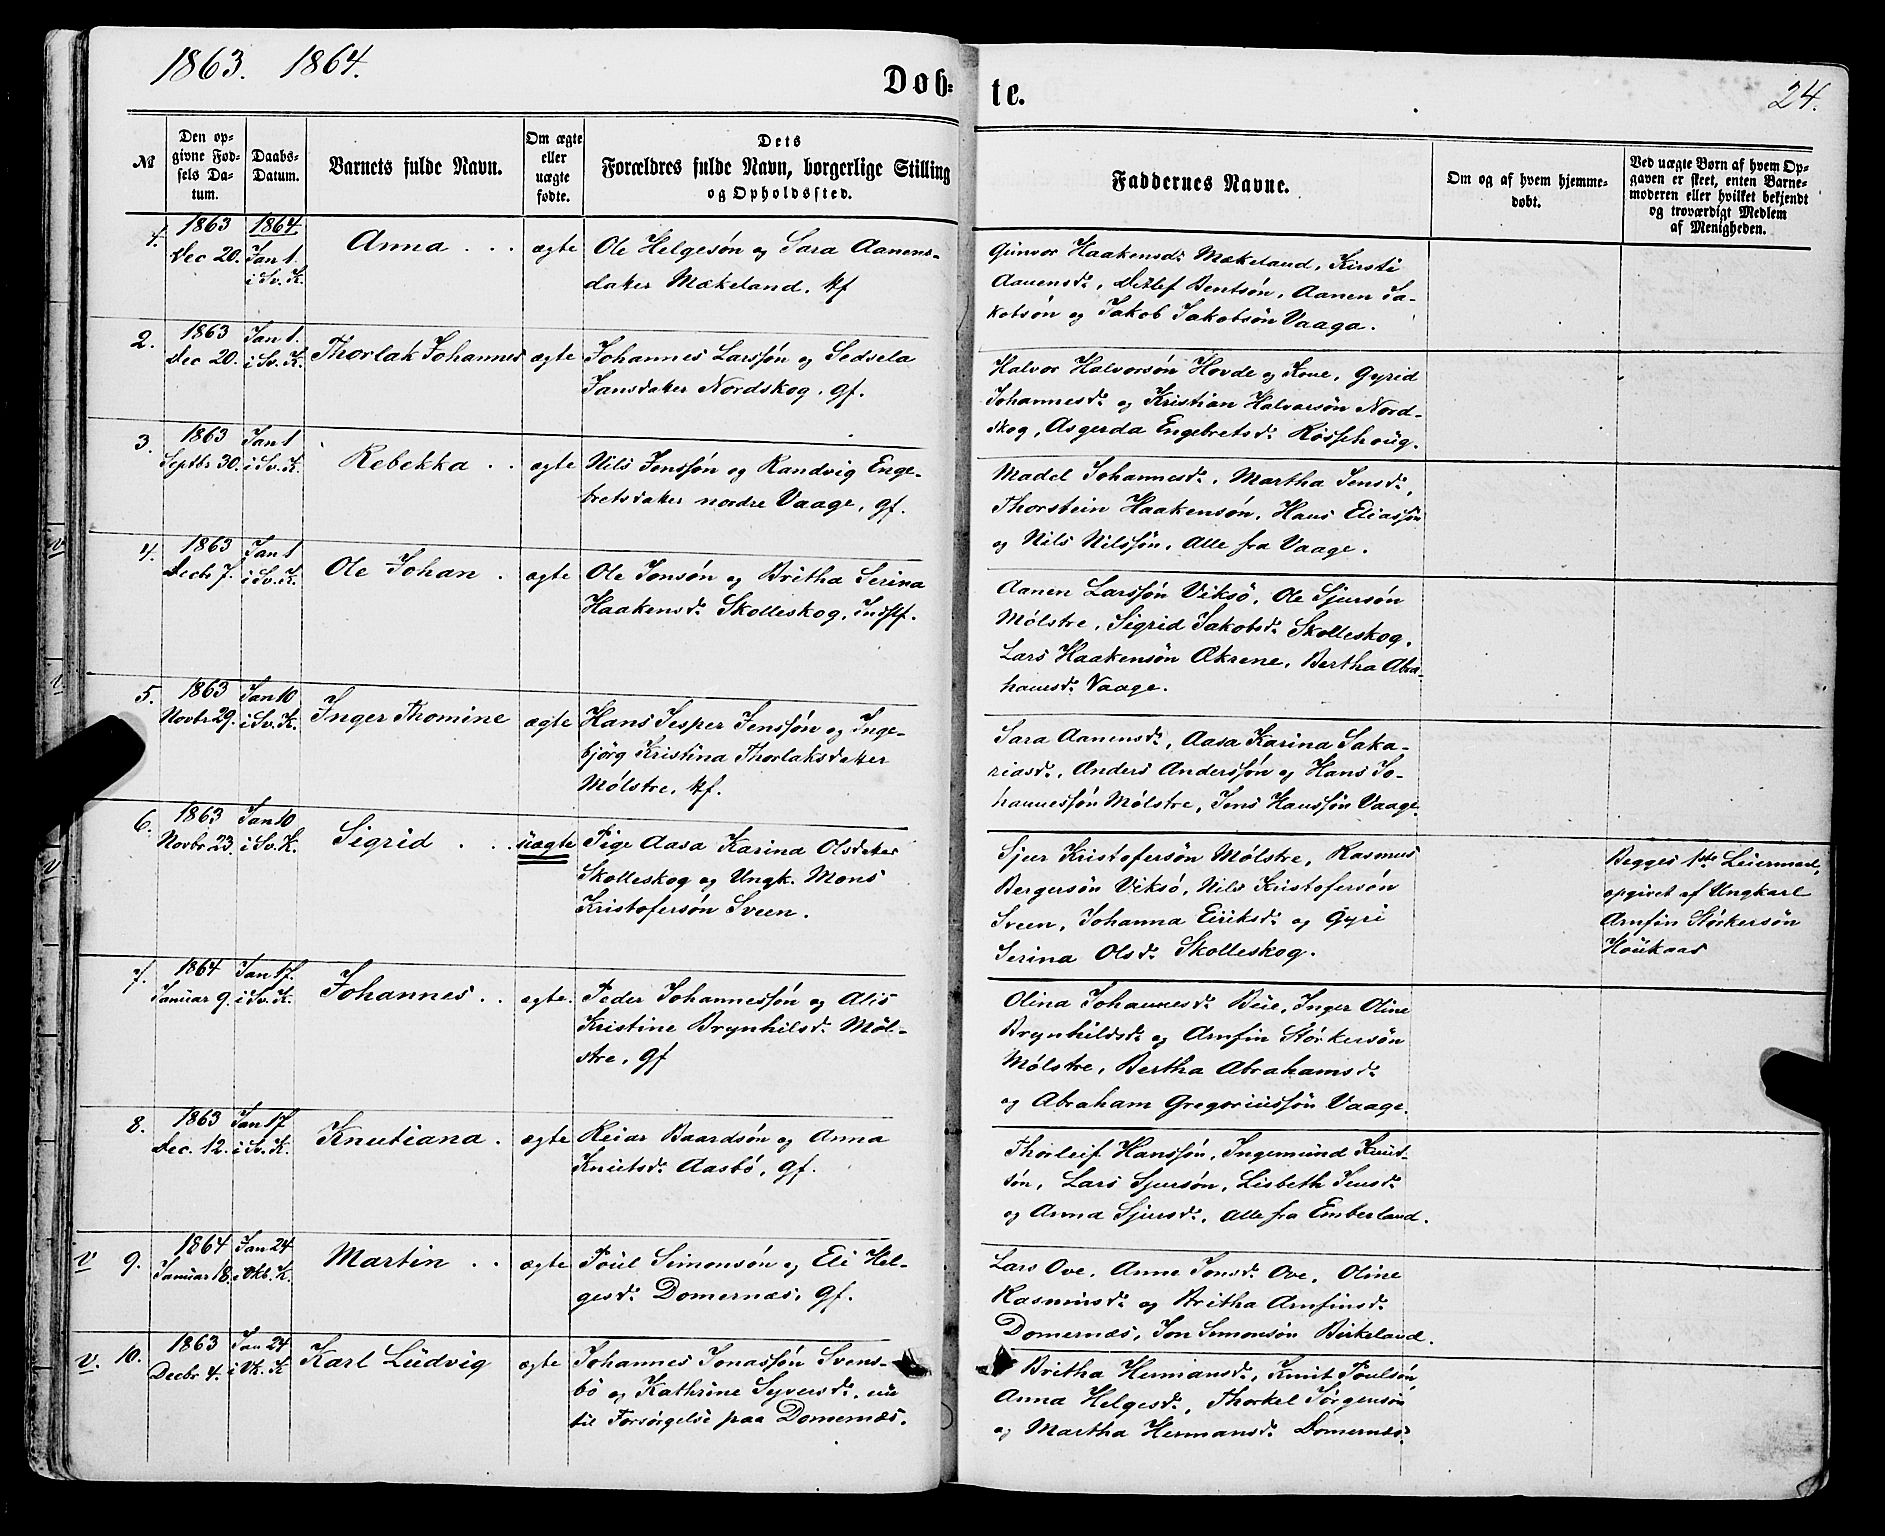 1863. 1864.
Døb-
te.
24.
№
Den op-
givne Fød-
sels Da-
tum.
Daabs-
Datum.
Barnets fulde Navn.
Om ægte
eller
uægte
fødte.
Dets
Forældres fulde Navn, borgerlige Stilling
og Opholdssted.
Faddernes Navne.
Om og af hvem hjemme-
døbt.
Ved uægte Børn af hvem Op-
gaven er skeet, enten Barne-
moderen eller hvilket bekjendt
og troværdigt Medlem
af Menigheden.
1.
1863
Dec 20.
1864
Jan 1.
i Sv. K.
Anna . . .
ægte
Ole Helgesøn og Sara Aanens-
datter Mækeland. kf
Gunvor Haakensdr. Mækeland, Kirsti
Aanensdr., Detlef Bentsøn, Aanen Ja-
kobsøn og Jakob Jakobsøn Vaaga.
2.
1863
Dec 20.
Jan 1.
i Sv. K.
Thorlak Johannes
ægte
Johannes Larssøn og Sedsela
Jansdatter Nordskog, gf.
Halvor Halvorsøn Hovde og Kone, Gyrid
Johannesdr. og Kristian Halvorsøn Nord-
skog, Asgerda Engebretsdr. Røssehoug.
3.
1863
Septbr 30.
Jan 1
i Sv. K.
Rebekka . .
ægte
Nils Jenssøn og Randvig Enge-
bretsdatter nordre Vaage, gf.
Madel Johannesdr., Martha Jensdr.,
Thorstein Haakensøn, Hans Eliassøn
og Nils Nilssøn, Alle fra Vaage.
4.
1863
Decbr 7.
Jan 1
i Sv. K.
Ole Johan .
ægte
Ole Jonsøn og Britha Serina
Haakensdr. Skolleskog, Indstf.
Aanen Larssøn Viksø, Ole Sjursøn
Mølstre, Sigrid Jakobsdr. Skolleskog,
Lars Haakensøn Økrene, Bertha Abra-
hamsdr. Vaage.
5.
1863
Novbr 29.
Jan 10
i Sv. K.
Inger Thomine
ægte
Hans Jesper Jenssøn og Inge-
bjørg Kristina Thorlaksdatter
Mølstre, kf.
Sara Aanensdr., Aasa Karina Saka-
riasdr., Anders Anderssøn og Hans Jo-
hannessøn Mølstre, Jens Hanssøn Vaage.
6.
1863
Novbr 23.
Jan 10
i Sv. K.
Sigrid . . .
uægte
Pige Aasa Karina Olsdatter
Skolleskog og Ungk. Mons
Kristofersøn Sveen.
Sjur Kristofersøn Mølstre, Rasmus
Bergersøn Viksø, Nils Kristofersøn
Sveen, Johanna Eiriksdr. og Gyri
Serina Olsdr. Skolleskog.
Begges 1ste Leiermaal,
opgivet af Ungkarl
Arnfin Størkersøn
Houkaas
7.
1864
Januar 9.
Jan 17.
i Sv. K.
Johannes . .
ægte.
Peder Johannessøn og Alis
Kristine Brynhilsdr. Møl-
stre, gf
Olina Johannesdr. Bue, Inger Oline
Brynhildsdr. og Arnfin Størkersøn
Mølstre, Bertha Abrahamsdr.
og Abraham Gregoriussøn Vaage.
8.
1863
Dec. 12.
Jan 17.
i Sv. K.
Knutiana .
ægte
Reiar Baardsøn og Anna
Knutsdr. Aasbø, gf.
Thorleif Hanssøn, Ingemund Knut-
søn, Lars Sjursøn, Lisbeth Jensdr.
og Anna Sjursdr., Alle fra Emberland.
v
9.
1864
Januar 18.
Jan 24
i Vkb. K.
Martin . .
ægte
Poul Simonsøn og Eli Hel-
gesdr. Domernæs, gf.
Lars Ove, Anne Jonsdr. Ove, Oline
Rasmusdr. og Britha Arnfinsdr.
Domernæs, Jon Simonsøn Birkeland.
v.
10.
1863
Decbr 4.
Jan 24
i Vk. K
Karl Ludvig
ægte
Johannes Jonassøn Svens-
bø og Kathrine Syversdr. nu
til Forsørgelse paa Domernæs.
Britha Hermansdr., Knut Poulsøn,
Anna Helgesdr., Thorkel Jørgensøn
og Martha Hermansdr. Domernæs.